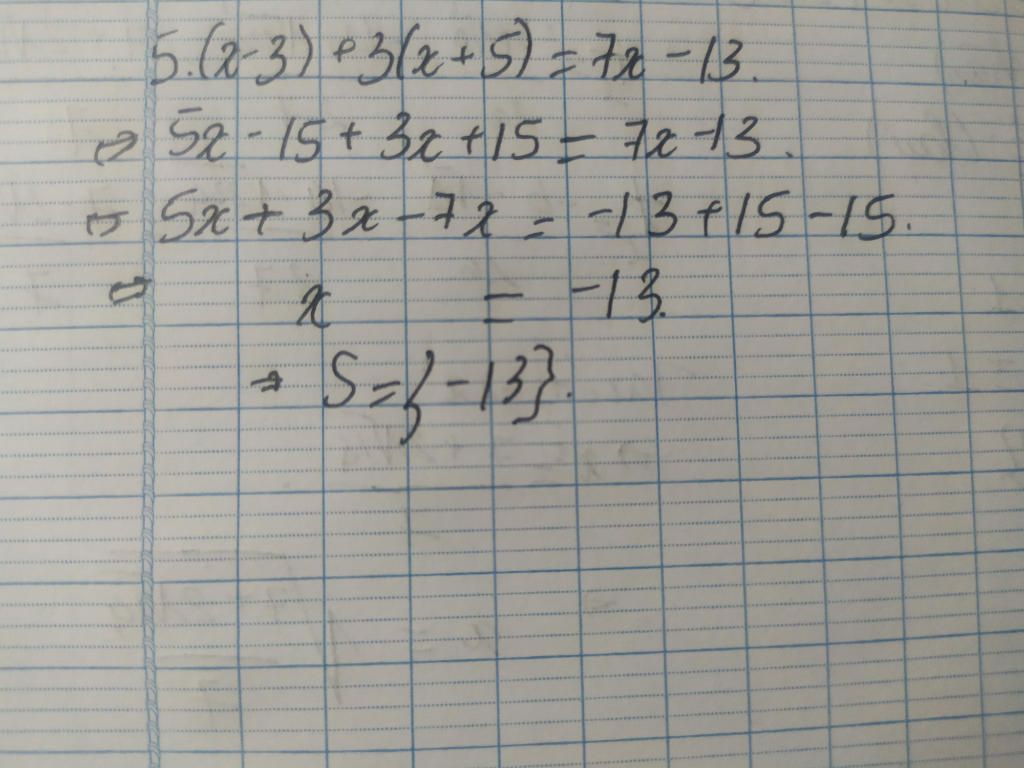 5.(x-3) + 3(x+5) = 7x - 13.
⇒ 5x - 15 + 3x + 15 = 7x - 13.
⇒ 5x + 3x - 7x = -13 + 15 - 15.
⇒ x = -13.
→ S = {-13}.